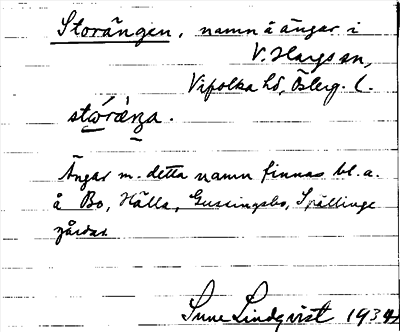 Storängen, namn å ängar i
V. Hargs sn,
Vifolka hd, Österg. l.
stὼráŋa.
Ängar m. detta namn finnas bl. a.
å Bo, Hälla, Gussingsbo, Spällinge
gårdar.
Sune Lindqvist 1934